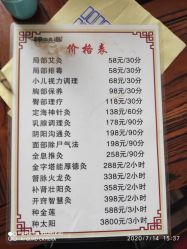 价格表
局部艾灸 58元/30分
局部排毒 58元/30分
小儿视力调理 68元/30分
胸部保养 98元/30分
臀部理疗 118元/30分
定海神针灸 138元/60分
乳腺调理灸 138元/70分
阴阳沟通灸 198元/90分
面部除尸气法 198元/90分
全息推灸 258元/90分
金字塔能厚德灸 288元/2小时
督脉火龙灸 338元/2小时
补肾壮阳灸 338元/2小时
开府智慧灸 398元/2小时
种金莲 588元/2小时
种太阳 3800元/3小时
2020/7/14 15:37